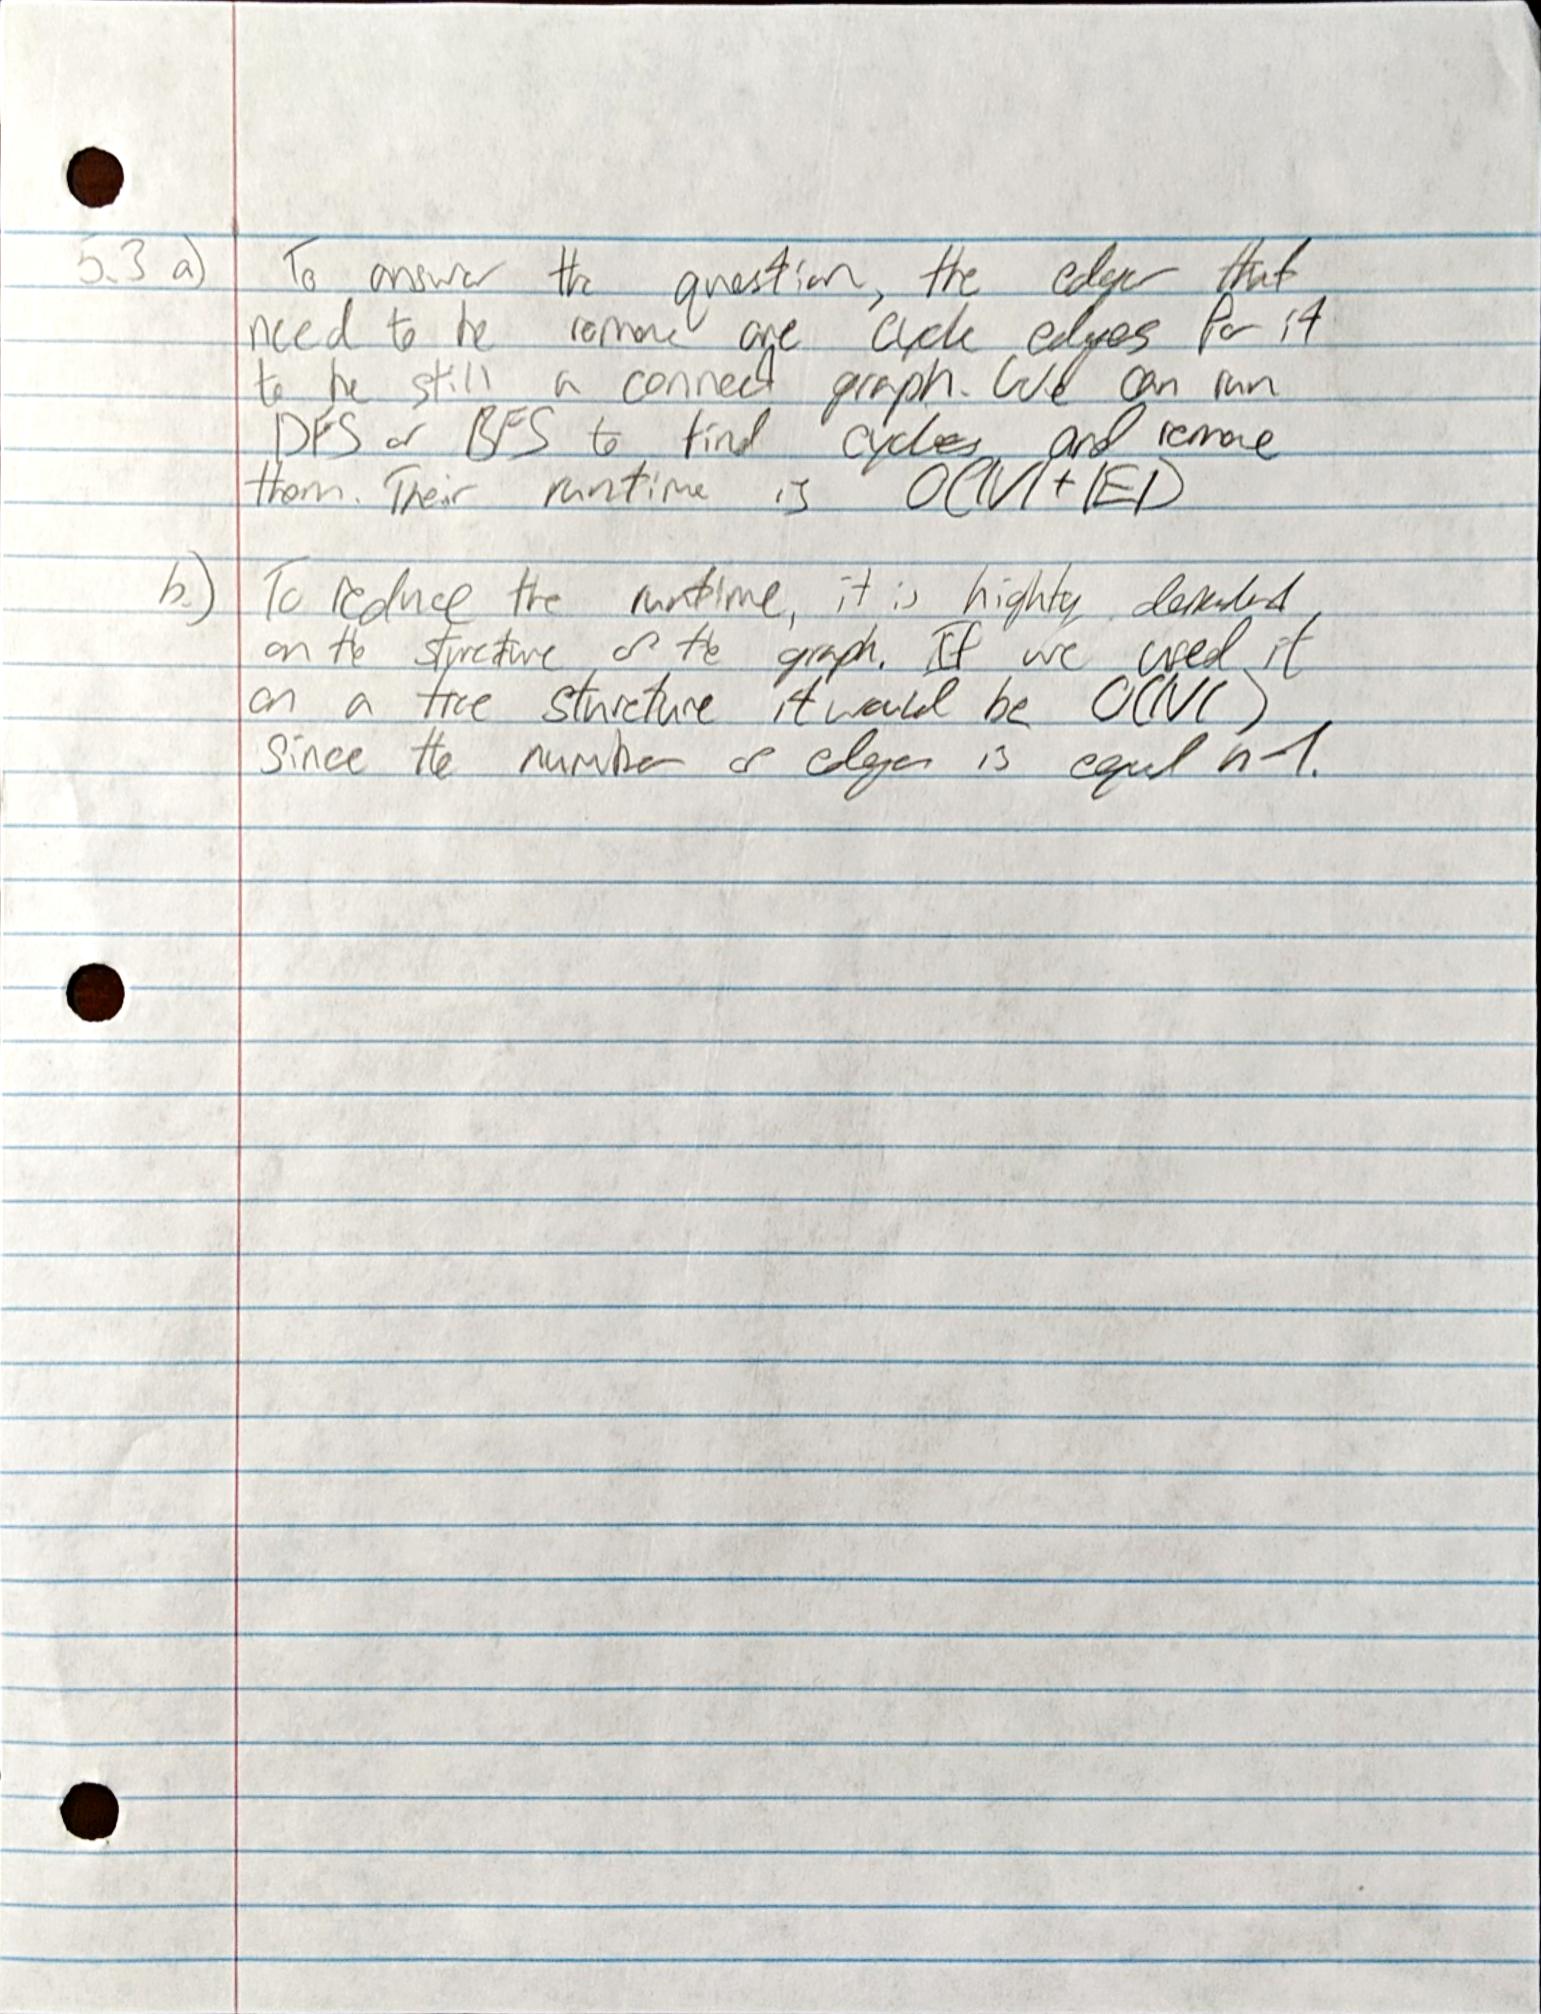 5.3 a) To answer the question, the edges that
need to be remove are cycle edges for it
to be still a connect graph. We can run
DFS or BFS to find cycles and remove
them. Their runtime is O(|V|+|E|)
b.) To reduce the runtime, it is highty
on the structure of the graph. If we used it
on a tree sturcture it would be O(|V|)
Since the number of edges is equal n-1.